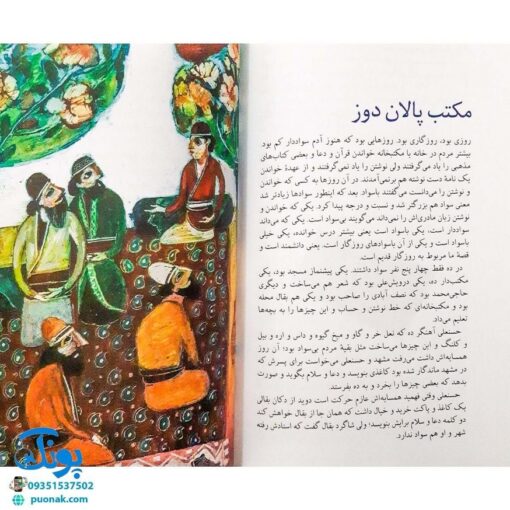 مکتب پالان دوز
روزی بود، روزگاری بود. روزهایی بود که هنوز آدم سواددار کم بود.
بیشتر مردم در خانه یا مکتبخانه خواندن قرآن و دعا و بعضی کتاب‌های
مذهبی را یاد می‌گرفتند ولی نوشتن را یاد نمی‌گرفتند و از عهدهٔ خواندن
یک نامهٔ دست نوشته هم برنمی‌آمدند. در آن روزها به کسی که خواندن و
نوشتن را می‌دانست می‌گفتند باسواد. بعد که اینطور سوادها زیادتر شد
اسم سواد هم بزرگتر شد و نسبت و درجه پیدا کرد. یکی که خواندن و
نوشتن زبان مادری‌اش را نمی‌داند می‌گویند بی‌سواد است. یکی که می‌داند
سواددار است، یکی باسواد است یعنی بیشتر درس خوانده، یکی خیلی
باسواد است یعنی از آن باسوادهای روزگار است. یعنی دانشمند است و
قصهٔ ما مربوط به روزگار قدیم است.
در ده فقط چهار پنج نفر سواد داشتند. یکی پیشنماز مسجد بود، یکی
مکتب‌دار ده، یکی درویش‌علی بود که شعر هم می‌ساخت و دیگری
حاجی‌محمد بود که نصف آبادی را صاحب بود و یکی هم بقال محله
بود و مکتبخانه‌ای که خط نوشتن و حساب و این چیزها را به بچه‌ها
تعلیم می‌داد.
حسنعلی آهنگر ده که نعل خر و گاو و میخ گیوه و داس و اره و بیل
و کلنگ و این چیزها می‌ساخت مثل بقیهٔ مردم بی‌سواد بود؛ آن روز
همسایه‌اش داشت می‌رفت مشهد و حسنعلی می‌خواست برای پسرش که
در مشهد ماندگار شده بود کاغذی بنویسد و دعا و سلام بگوید و صورت
بدهد که بعضی چیزها را بخرد و به ده بفرستد.
حسنعلی وقتی فهمید همسایه‌اش عازم حرکت است از دکان بقالی
یک کاغذ و پاکت خرید و خیال داشت که همان جا از بقال خواهش کند
دو کلمه دعا و سلام برایش بنویسد؛ ولی شاگرد بقال گفت که استادش رفته
شهر و او هم سواد ندارد.
پونک
09351537502
puonak.com